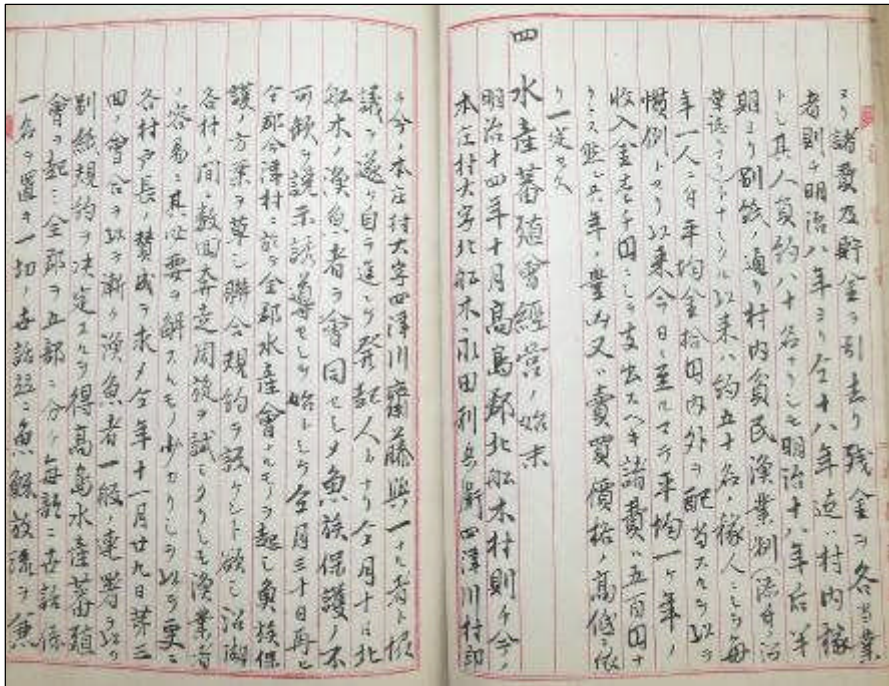 ヨリ諸費及貯金ヲ引去リ残金ヲ各当業
者則チ明治八年ヨリ仝十八年迄ハ村内稼
トシ其人員約八十名ナリシモ明治十八年后半
期ヨリ別紙ノ通リ村内貧民漁業
以来ハ約五十名ノ稼人ニシテ毎
年一人ニ付年均金拾円内外ヲ配当スルヲ以テ
慣例トセリ以来今日ニ至ルマデ平均一ヶ年ノ
収入金壱千円ニシテ支出スヘキ諸費ハ五百円ナ
リトス然レ共年ノ豊凶又ハ売買価格ノ高低ニ依
リ一定セス
四 水産蕃殖會經営ノ始末
明治十四年十月高島郡北船木村則チ今ノ
本庄村大字北船木永田利兵衛四津川村即
チ今ノ本庄村大字四津川齋藤與一ナル者ト協
議ヲ遂ケ自ラ進ンデ発起人トナリ仝月十日北
船木ノ漁魚者ヲ會同セシメ魚族保護ノ不
可欠ヲ説示誘導セシヲ始トシテ仝月三十日再ヒ
仝郡今津村ニ於テ全郡水産會ナルモノヲ起シ魚族保
護ノ方案ヲ草シ聯合規約ヲ設ケント欲シ沿湖
各村ノ間ニ数回奔走周旋ヲ試ミタリシモ漁業者
ノ容易ニ其必要ヲ解スルモノ少カリシヲ以テ更ニ
各村戸長ノ賛成ヲ求メ仝年十一月廿九日第三
回ノ會合ヲ以テ漸ク漁魚者一般ノ連署ヲ以テ
別紙規約ヲ決定スルヲ得高島水産蕃殖
會ヲ起シ全郡ヲ五部ニ分ケ毎部ニ世話係
一名ヲ置キ一切ノ世話並ニ魚鰥放流ヲ兼